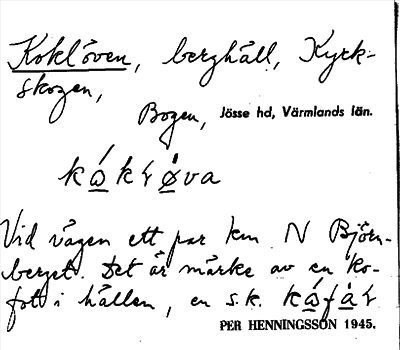 Koklöven, berghäll, Kyrk-
skogen,
Bogen, Jösse hd, Värmlands län.
Vid vägen ett par km N Björn-
berget. Det är märke av en ko-
fot i hällen, en s.k.
PER HENNINGSSON 1945.